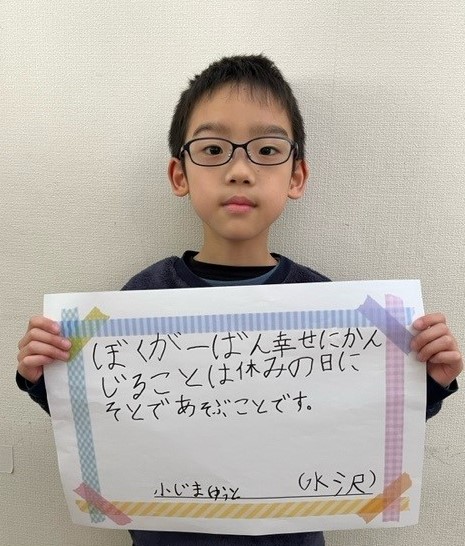 ぼくがーばん幸せにかん
じることは休みの日に
そとであそぶことです。
小じまゆうと (GK沢)